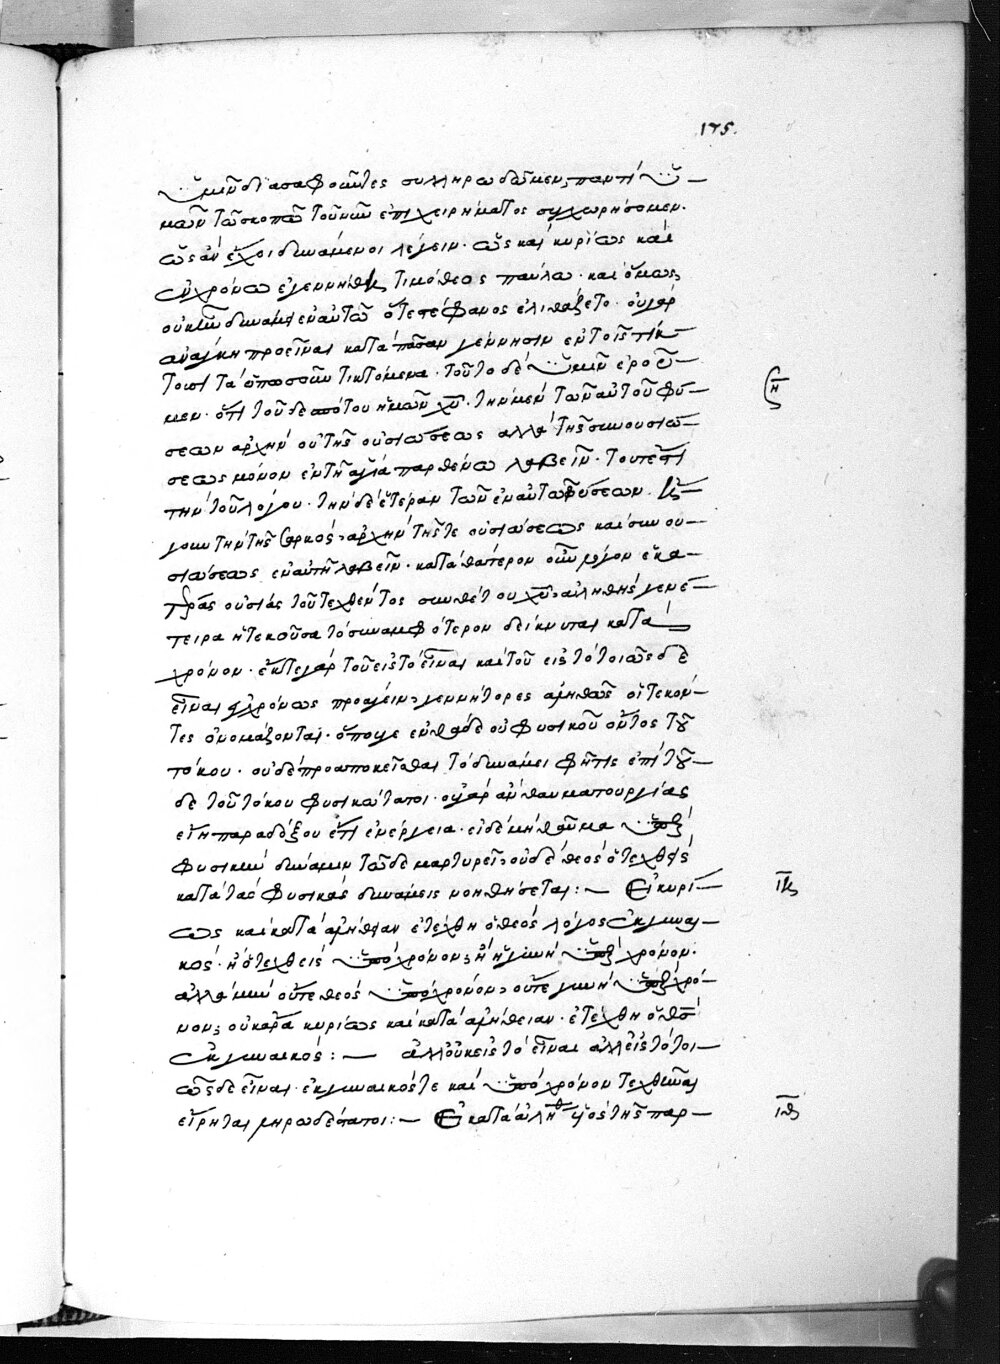 175.
ὑμῖν διασαφοῦντες συλληρωδοῦμεν, παντὶ ὑ-
μῶν τῶ σκοπῶ τοῦ νῦν ἐπιχειρήματος συγχωρήσομεν.
ὡς ἂν ἔχοι δυνάμενοι λέγειν. ὡς καὶ κυρίως καὶ
ἐν χρόνω ἐγεννήθη τιμόθεος παύλω. καὶ ὅμως
οὐκ ἦν δυνάμει ἐν αὐτῶ ὅτε στέφανος ἐλιθάζετο. οὐ γὰρ
ἀνάγκη προεῖναι κατὰ πᾶσαν γέννησιν ἐν τοῖς τίκ-
τουσι τὰ ὁπωσοῦν τικτόμενα. τοῦτο δὲ ὑμῖν ἐροῦ-
μεν. ὅτι τοῦδε ἀπὸ τοῦ ἡμῶν χῦ. τὴν μὲν τῶν αὐτοῦ φύ-
η
σεων ἀρχὴν οὐ τῆς οὐσιώσεως ἀλλὰ τῆς συνουσιώ-
σεως μόνον ἐν τῇ ἁγία παρθένω λαβεῖν. τουτέστι
τὴν τοῦ λόγου. τὴν δὲ ἑτέραν τῶν ἐν αὐτῶ φύσεων.
γουν τὴν τῆς σαρκός, ἀρχὴν τῆς τε οὐσιώσεως καὶ συνου-
σιώσεως ἐν αὐτῇ λαβεῖν. κατὰ θάτερον οὖν μόνον ἑκα-
τέρας οὐσίας τοῦ τεχθέντος συνθέτου χῦ, ἀληθὴς γενέ-
τειρα ἡ τεκοῦσα τὸ συναμφότερον δείκνυται κατὰ
χρόνον. ἔκ τε γὰρ τοῦ εἰς τὸ εἶναι καὶ τοῦ εἰς τὸ τοιῶσδε
εἶναι ἐν χρόνω προάγειν, γεννήτορες ἀληθῶς οἱ τεκόν-
τες ὀνομάζονται. ὅπου γε ἐνθάδε οὐ φυσικοῦ ὄντος τοῦ
τόκου. οὐδὲ προαποκεῖσθαι τὸ δυνάμει φῆτις ἐπὶ τοῦ-
δε τοῦ τόκου φυσικώτατοι. οὐ γὰρ ἂν θαυματουργίας
εἴη παραδόξου ἔτι ἐνέργεια. εἰ δὲ μὴ θαῦμα ὑπὲρ
φυσικὴν δύναμιν τῶδε μαρτυρεῖ, οὐδὲ θεὸς ὁ τεχθεὶς
κατὰ τὰς φυσικὰς δυνάμεις νοηθήσεται :— Εἰ κυρί-
ιη
ως καὶ κατὰ ἀλήθειαν ἐτέχθη ὁ θεὸς λόγος ἐκ γυναι-
κός. ἢ ὁ τεχθεὶς ὑπὸ χρόνον, ἢ ἡ γυνὴ ὑπὲρ χρόνον.
ἀλλὰ μὴν οὔτε θεὸς ὑπὸ χρόνον, οὔτε γυνὴ ὑπὲρ χρό-
νον, οὐκ ἄρα κυρίως καὶ κατὰ ἀλήθειαν. ἐτέχθη ὁ θσ
ἐκ γυναικός :— ἀλλ' οὐκ εἰς τὸ εἶναι ἀλλ' εἰς τὸ τοι-
ῶσδε εἶναι. ἐκ γυναικός τε καὶ ὑπὸ χρόνον τεχθῆναι
εἴρηται ληρωδέστατοι :— Εἰ κατὰ ἀλήθ υἱὸς τῆς παρ-
ιθ